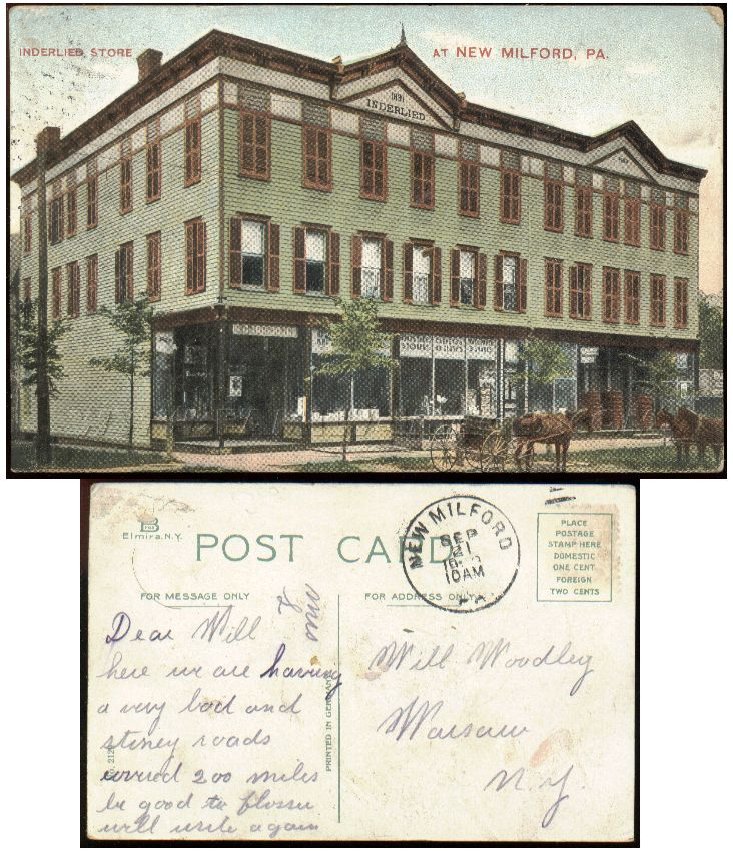 INDERLIED STORE AT NEW MILFORD, PA.
1891
INDERLIED
B
Elmira. N.Y.
POST CARD
NEW MILFORD
SEP
21
10AM
PA
PLACE
POSTAGE
STAMP HERE
DOMESTIC
ONE CENT
FOREIGN
TWO CENTS
FOR MESSAGE ONLY
FOR ADDRESS ONLY
Dear Will
here we are having
a very bad and
stoney roads
covered 200 miles
be good to
will write again
PRINTED IN GERMANY
Will Woodley
Warsaw
N.Y.